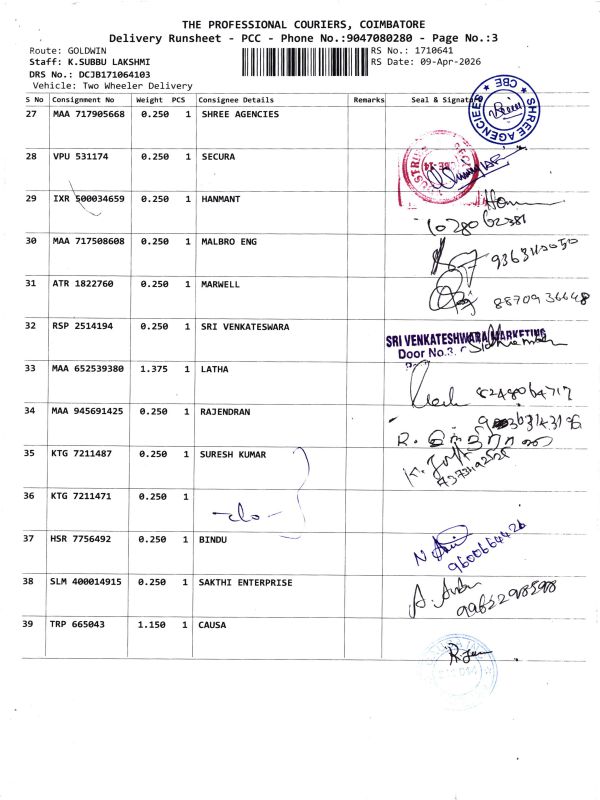 THE PROFESSIONAL COURIERS, COIMBATORE
Delivery Runsheet - PCC - Phone No.:9047080280 - Page No.:3
Route: GOLDWIN RS No.: 1710641
Staff: K.SUBBU LAKSHMI RS Date: 09-Apr-2026
DRS No.: DCJB171064103
Vehicle: Two Wheeler Delivery
S No Consignment No Weight PCS Consignee Details Remarks Seal & Signature
27 MAA 717905668 0.250 1 SHREE AGENCIES SHREE AGENCIES CBE
28 VPU 531174 0.250 1 SECURA
29 IXR 500034659 0.250 1 HANMANT
30 MAA 717508608 0.250 1 MALBRO ENG
31 ATR 1822760 0.250 1 MARWELL 8870936648
32 RSP 2514194 0.250 1 SRI VENKATESWARA SRI VENKATESHWARA MARKETING
Door No.3,
33 MAA 652539380 1.375 1 LATHA 8248064717
34 MAA 945691425 0.250 1 RAJENDRAN
35 KTG 7211487 0.250 1 SURESH KUMAR
36 KTG 7211471 0.250 1 -do-
37 HSR 7756492 0.250 1 BINDU 9600664426
38 SLM 400014915 0.250 1 SAKTHI ENTERPRISE 9965298598
39 TRP 665043 1.150 1 CAUSA